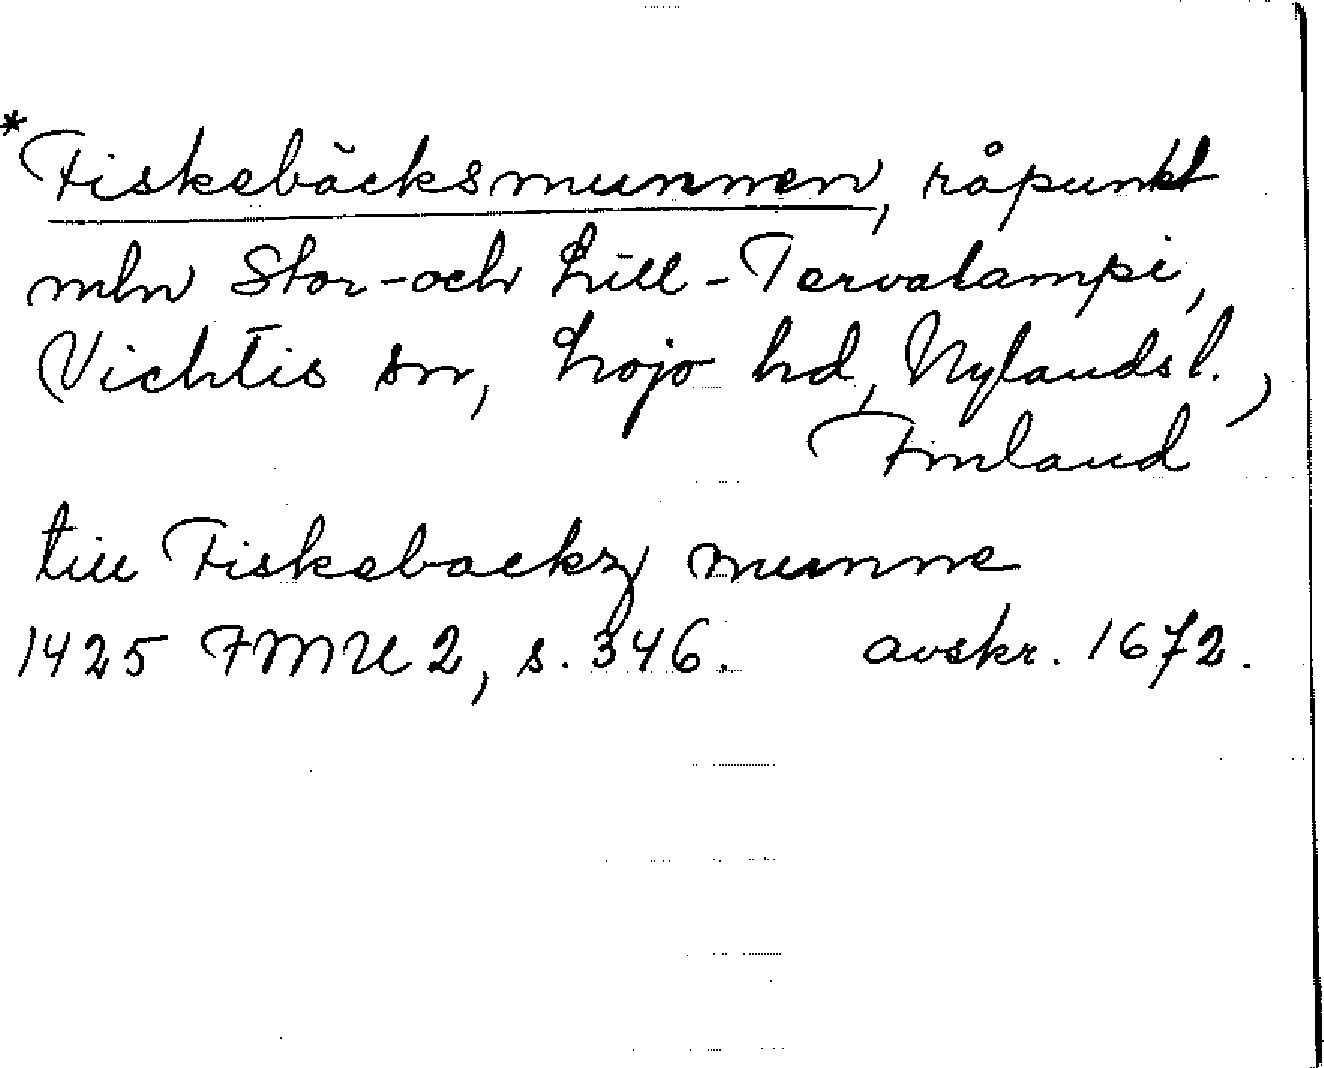 *Fiskebäcksmunnen, råpunkt
mln Stor- och Lill-Tervalampi,
Vichtis sn, Lojo hd, Nylands l.,
Finland
till Fiskebackz munne
1425 FMU 2, s. 346. avskr. 1672.